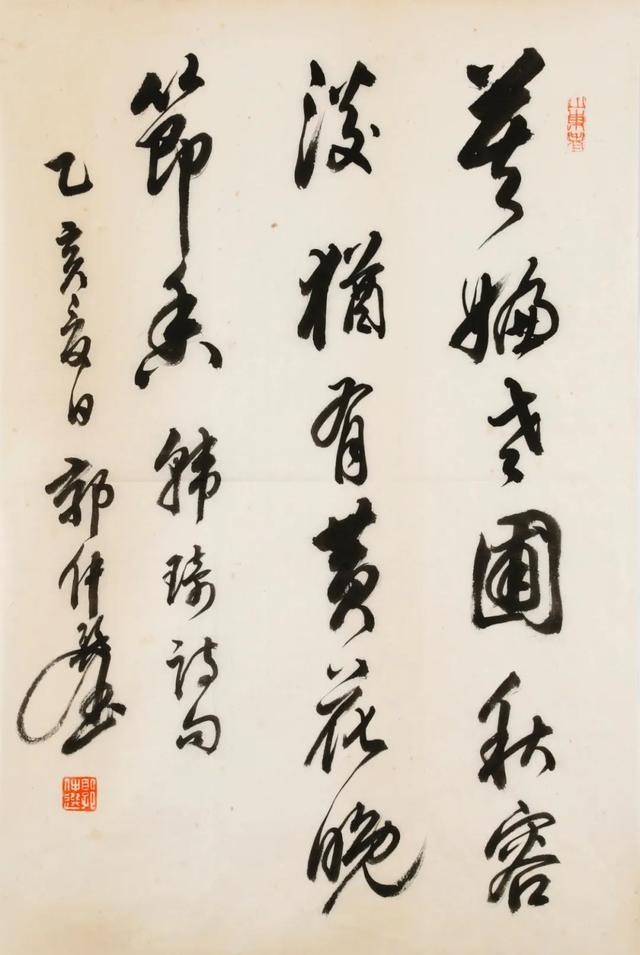 莫嫌老圃秋容
淡猶有黄花晚
節香 韓琦詩句
乙亥夏日 郭仲選
郭仲選